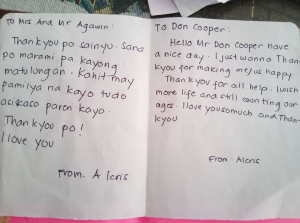 To Mrs And Mr Agawin:
Thank you po sainyu. Sana
po marami pa kayong
matulungan. Kahit may
pamilya na kayo tudo
asikaso paren kayo.
Thank you po!
I love you
From. Aleris
To Don Cooper:
Hello Mr Don Cooper have
a nice day. I just wanna Than
kyou for making me/us happy
Thank you for all help. I wish
more life and still counting our
ages. I love you so much and Than
kyou
From: Aleris